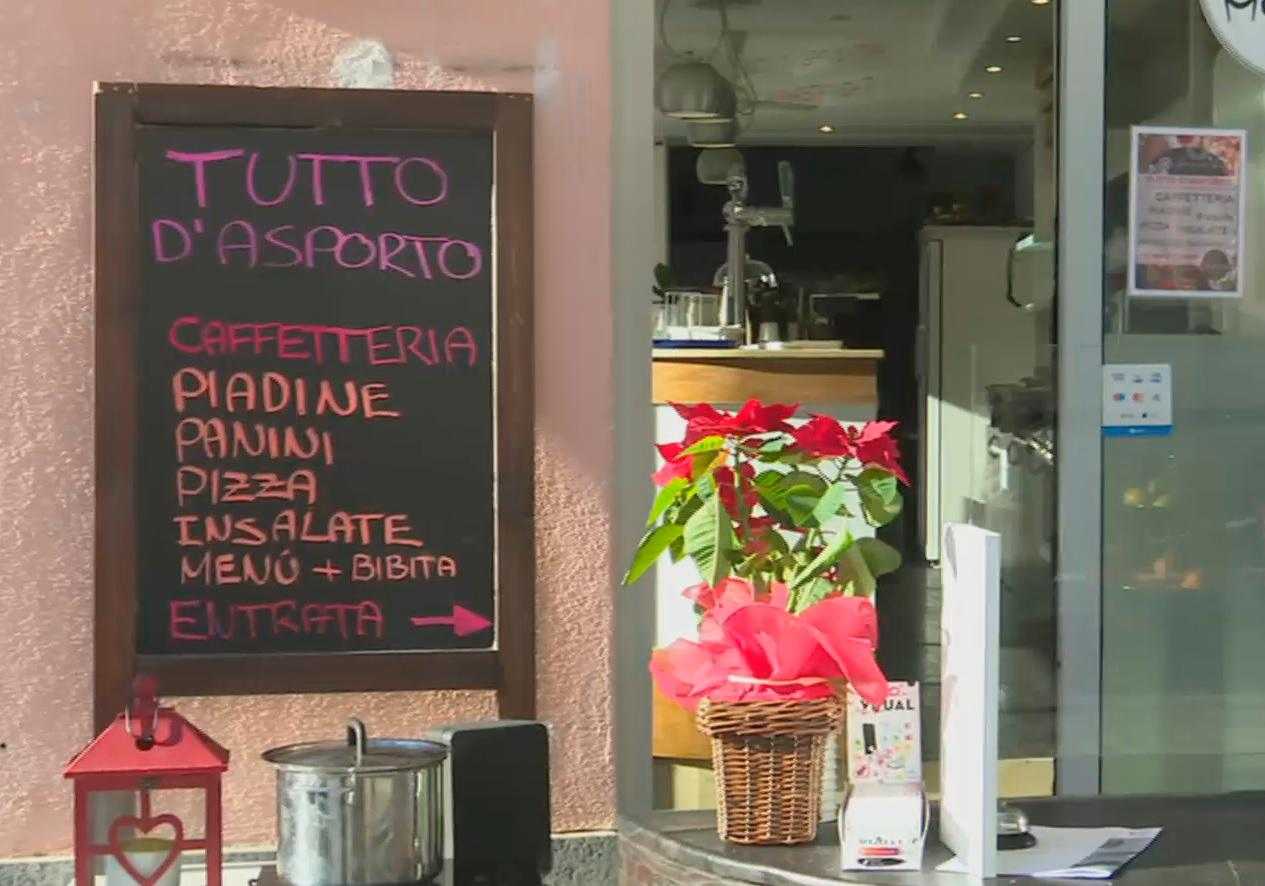 TUTTO
D'ASPORTO
CAFFETTERIA
PIADINE
PANINI
PIZZA
INSALATE
MENÚ + BIBITA
ENTRATA →
CAFFETTERIA
PIADINE
INSALATE